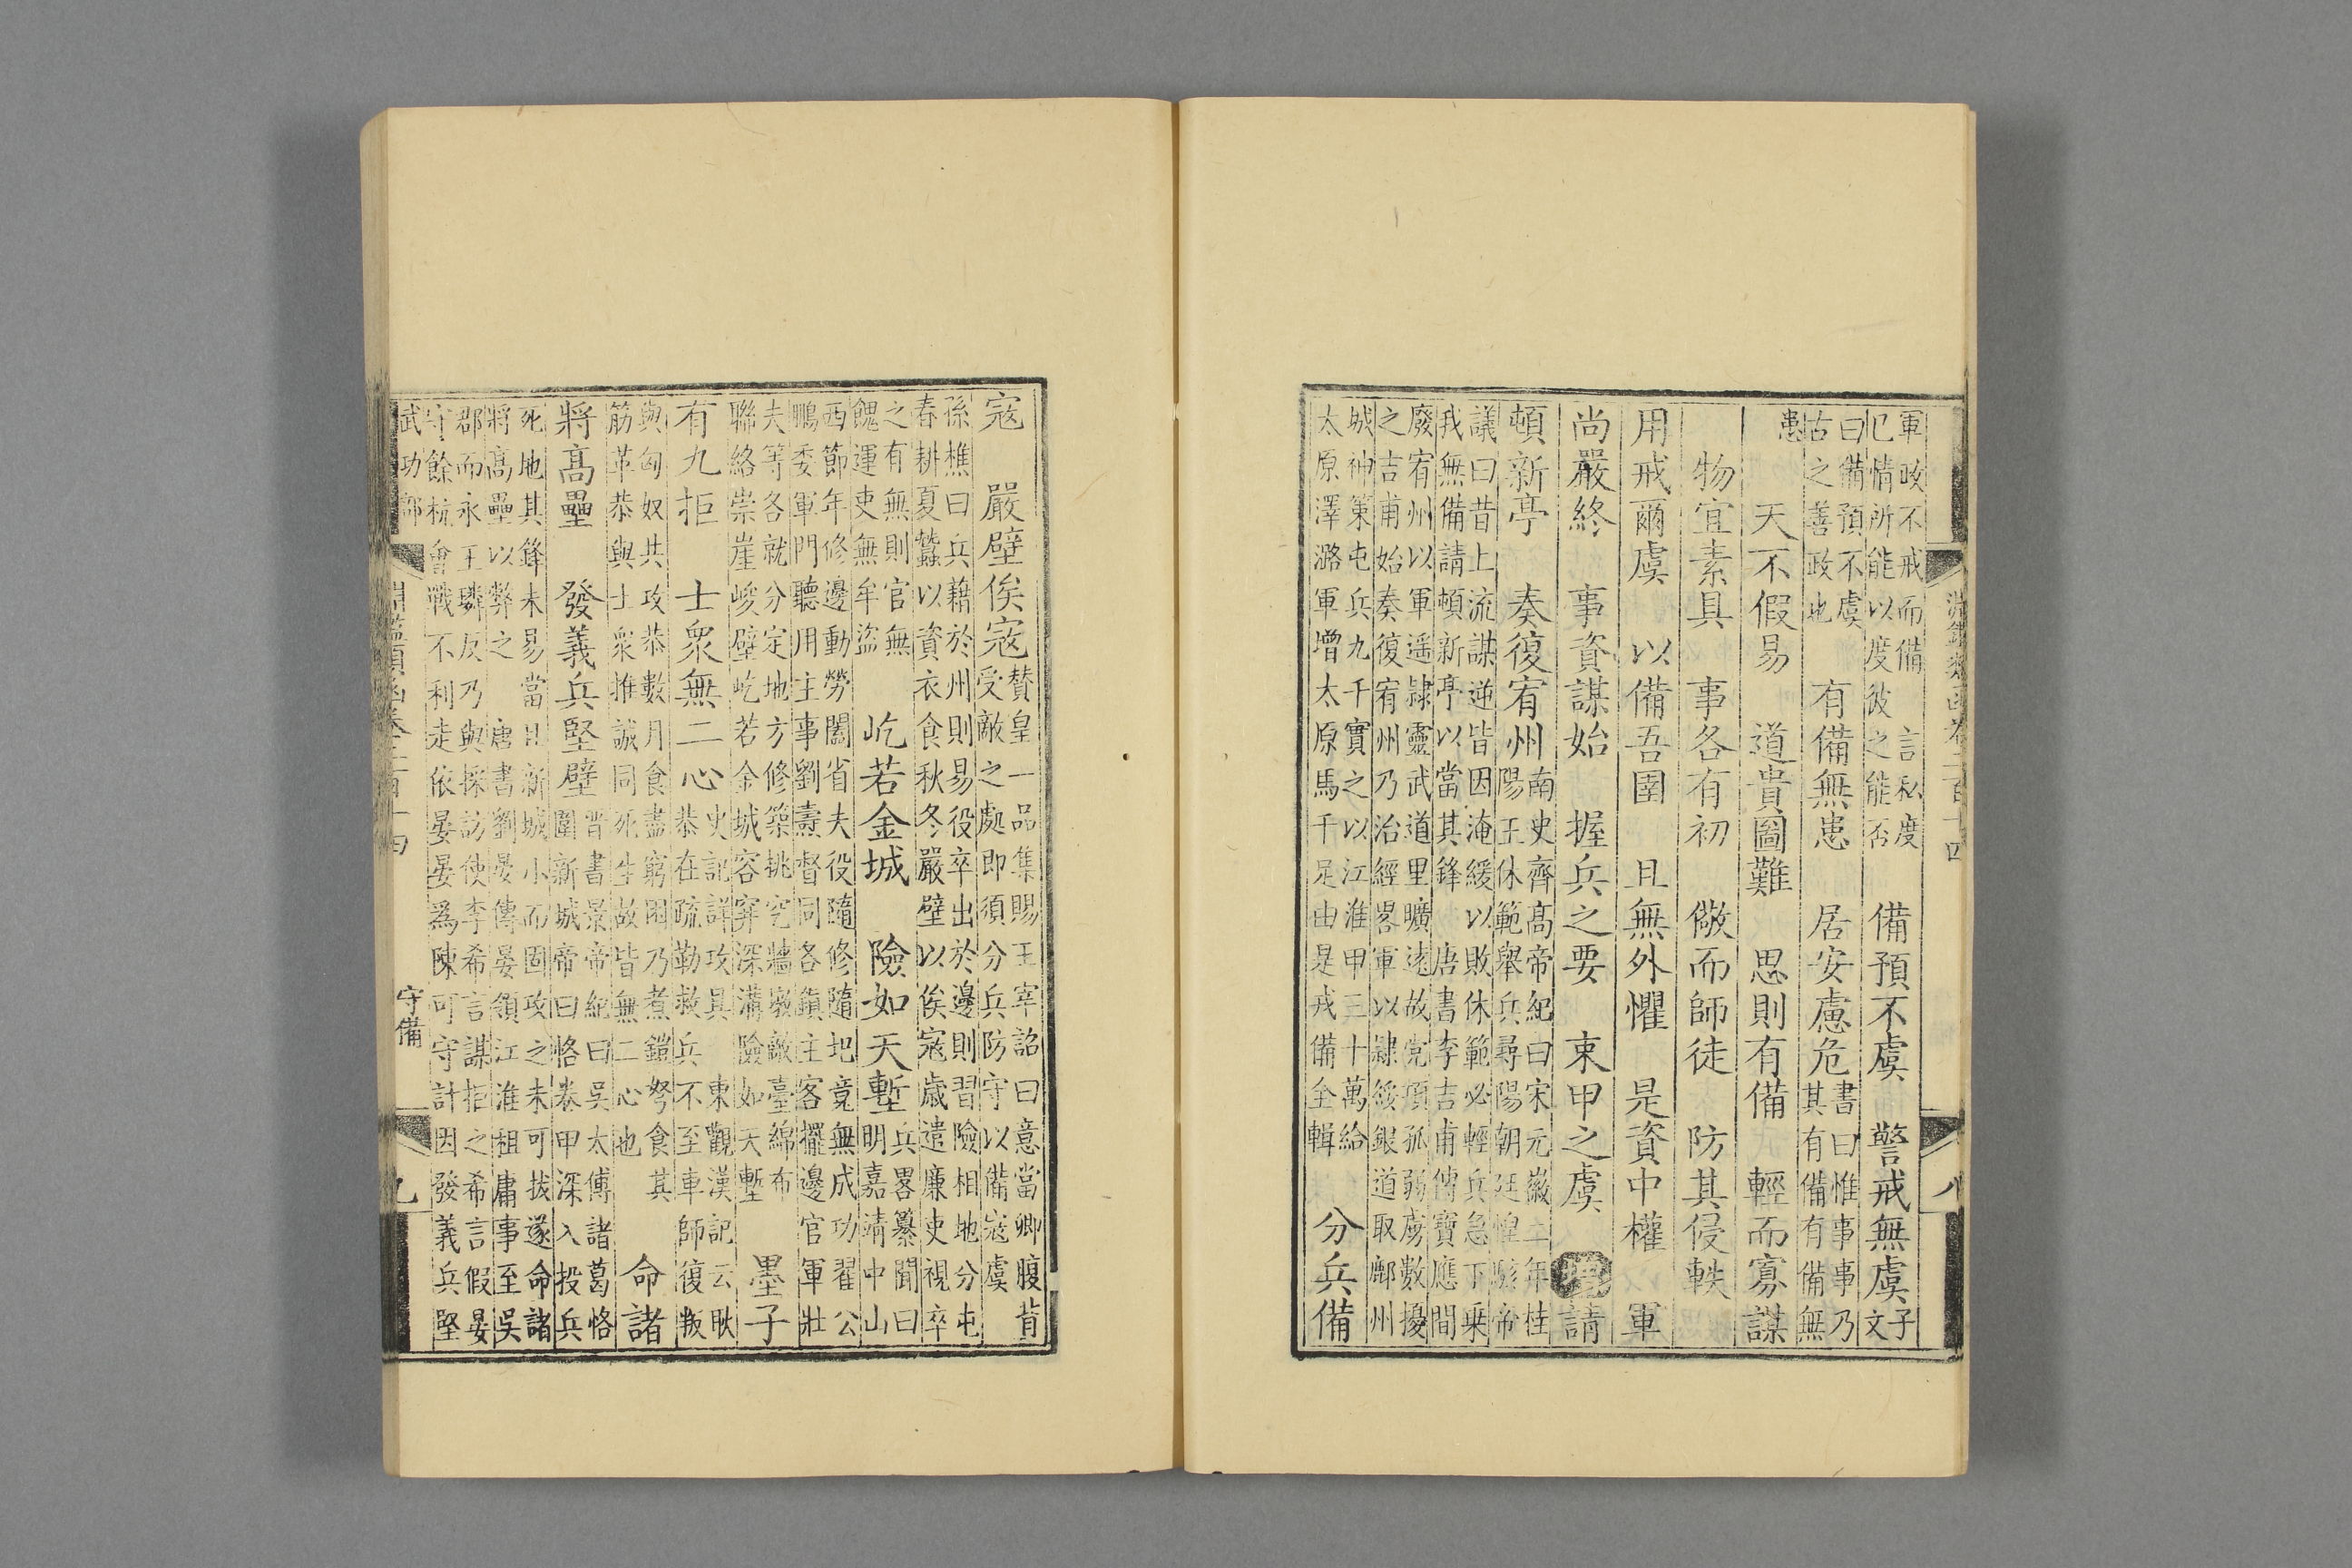 軍政不戒而備　言私度
已情所能以度彼之能否
備預不虞　警戒無虞
子
文
曰備預不虞
古之善政也
有備無患　居安慮危
書曰惟事事乃
其有備有備無
患
天不假易　道貴圖難　思則有備　輕而寡謀
物宜素具　事各有初　儆而師徒　防其侵軼
用戒爾虞　以備吾圉　且無外懼　是資中權　軍
尚嚴終　事資謀始　握兵之要　束甲之虞　增請
頓新亭　奏復宥州
南史齊高帝紀曰宋元徽二年桂
陽王休範舉兵尋陽朝廷惶駭帝
議曰昔上流謀逆皆因淹緩以敗休範必輕兵急下乗
我無備請頓新亭以當其鋒　唐書李吉甫傳寶應間
廢宥州以軍遥隷靈武道里曠逺故党項孤弱虜數擾
之吉甫始奏復宥州乃治經畧軍以隷綏銀道取鄜州
城神策屯兵九千實之以江淮甲三十萬給
太原澤潞軍增太原馬千足由是戎備全輯
分兵備
淵鑑類函卷二百十四
八
寇　嚴壁俟寇
賛皇一品集賜王宰詔曰意當卿腹背
受敵之處即須分兵防守以備寇虞
孫樵曰兵藉於州則易役卒出於邊則習險相地分屯
春耕夏蠶以資衣食秋冬嚴壁以俟寇歲遣廉吏視卒
之有無則官無
餽運吏無牟盜
屹若金城　險如天塹
兵畧纂聞曰
明嘉靖中山
西節年修邊動勞闔省夫役隨修隨圯竟無成功翟公
鵬委軍門聽用主事劉燾督同各鎮主客擺邊官軍壯
夫等各就分定地方修築挑穵牆墩敵臺綿布
聯絡崇崖峻壁屹若金城容穽深溝險如天塹
墨子
有九拒　士衆無二心
史記詳攻具　東觀漢記云耿
恭在疏勒救兵不至車師復叛
與匈奴共攻恭數月食盡窮困乃煮鎧弩食其
筋革恭與士衆推誠同死生故皆無二心也
命諸
將高壘　發義兵堅壁
晋書景帝紀曰吳太傅諸葛恪
圍新城帝曰恪卷甲深入投兵
死地其鋒未易當且新城小而固攻之未可拔遂命諸
將高壘以弊之　唐書劉晏傳晏領江淮租庸事至吳
郡而永王璘反乃與採訪使李希言謀拒之希言假晏
守餘杭會戰不利走依晏晏爲陳可守計因發義兵堅
武功部
淵鑑類函卷二百十四
守備
九